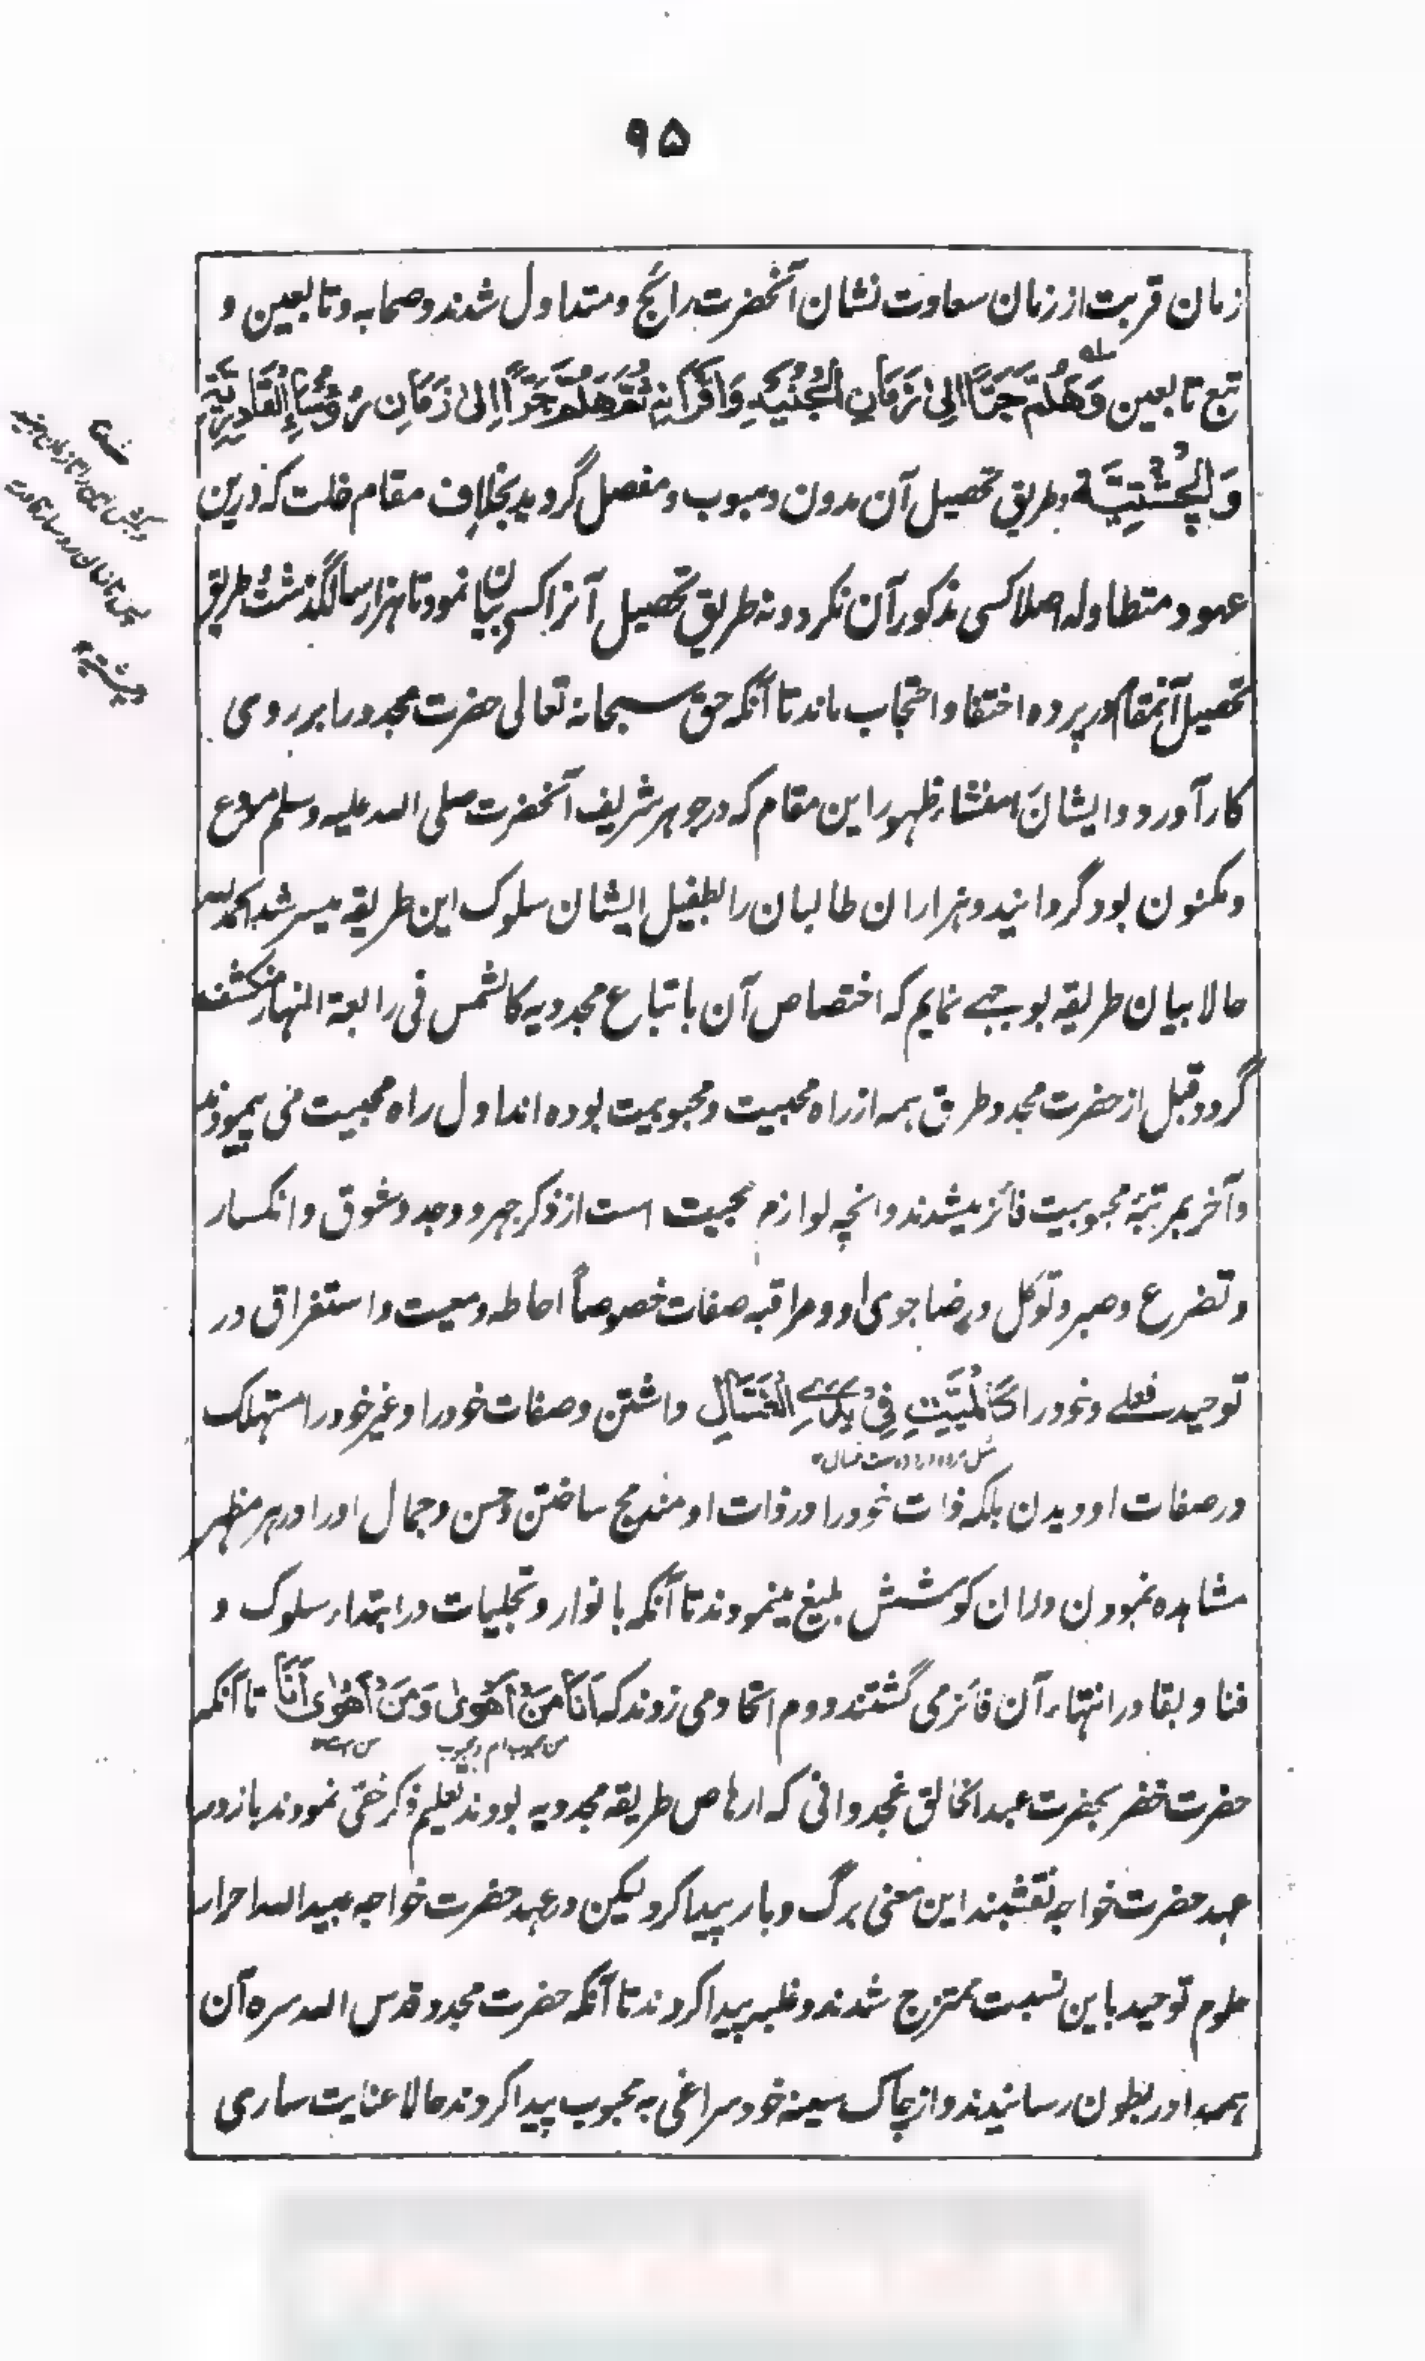 ۹۵
زمان قربت از زمان سعادت نشان آنحضرت رائج و متداول شدند و صحابه و تابعین و
تبع تابعین وَهَلُمَّ جَرًّا اِلیٰ زَمَانِ الْجُنَيْدِ وَاَقْرَانِهٖ ثُمَّ هَلُمَّ جَرًّا اِلیٰ زَمَانِ رُؤَسَاءِ الْقَادِرِيَّةِ
وَالْچِشْتِيَّة و طریق تحصیل آن مدون و مبوب و مفصل گردید بخلاف مقام خلت که درین
عهود متطاوله اصلا کسی مذکور آن نکرد و نه طریق تحصیل آنرا کسی بیان نمود تا هزار سال گذشت طریق
تحصیل آنمقام در پرده اختفا و احتجاب ماند تا آنکه حق سبحانه تعالی حضرت مجدد را بر روی
کار آورد و ایشان را منشاء ظهور این مقام که در جوهر شریف آنحضرت صلی الله علیه وسلم مودع
و مکنون بود گردانید و هزاران طالبان را بطفیل ایشان سلوک این طریقه میسر شد الحمد لله
حالا بیان طریقه بوجهے نمایم که اختصاص آن باتباع مجددیه کالشمس فی رابعة النهار منکشف
گردد قبل از حضرت مجدد طرق همه از راه محبیت و محبوبیت بوده اند اول راه محبیت می پیمودند
و آخر بمرتبهٔ محبوبیت فائز میشدند و انچه لوازم محبیت است از ذکر جهر و وجد و شوق و انکسار
و تضرع و صبر و توکل و رضا جوی او و مراقبه صفات خصوصاً احاطه و معیت و استغراق در
توحید فعلے و خود را کَالْمَيِّتِ فِیْ يَدَیِ الْغَسَّالِ داشتن و صفات خود را و غیر خود را مستهلک
در صفات او دیدن بلکه ذات خود را در ذات او مندمج ساختن و حسن و جمال او را در هر مظهر
مشاهده نمودن دران کوشش بلیغ مینمودند تا آنکه بانوار و تجلیات در ابتداء سلوک و
فنا و بقا در انتهاء آن فائز می گشتند و دم اتحاد می زدند که اَنَا مَنْ اَهْوٰی وَمَنْ اَهْوٰی اَنَا تا آنکه
حضرت خضر بحضرت عبدالخالق غجدوانی که ارهاص طریقه مجددیه بودند تعلیم ذکر خفی نمودند باز در
عهد حضرت خواجه نقشبند این معنی برگ و بار پیدا کرد لیکن در عهد حضرت خواجه عبیدالله احرار
علوم توحید باین نسبت ممتزج شدند و غلبه پیدا کردند تا آنکه حضرت مجدد قدس الله سره آن
همه را در بطون رسانیدند و از چاک سینه خود سراغی به محبوب پیدا کردند حالا عنایت ساری